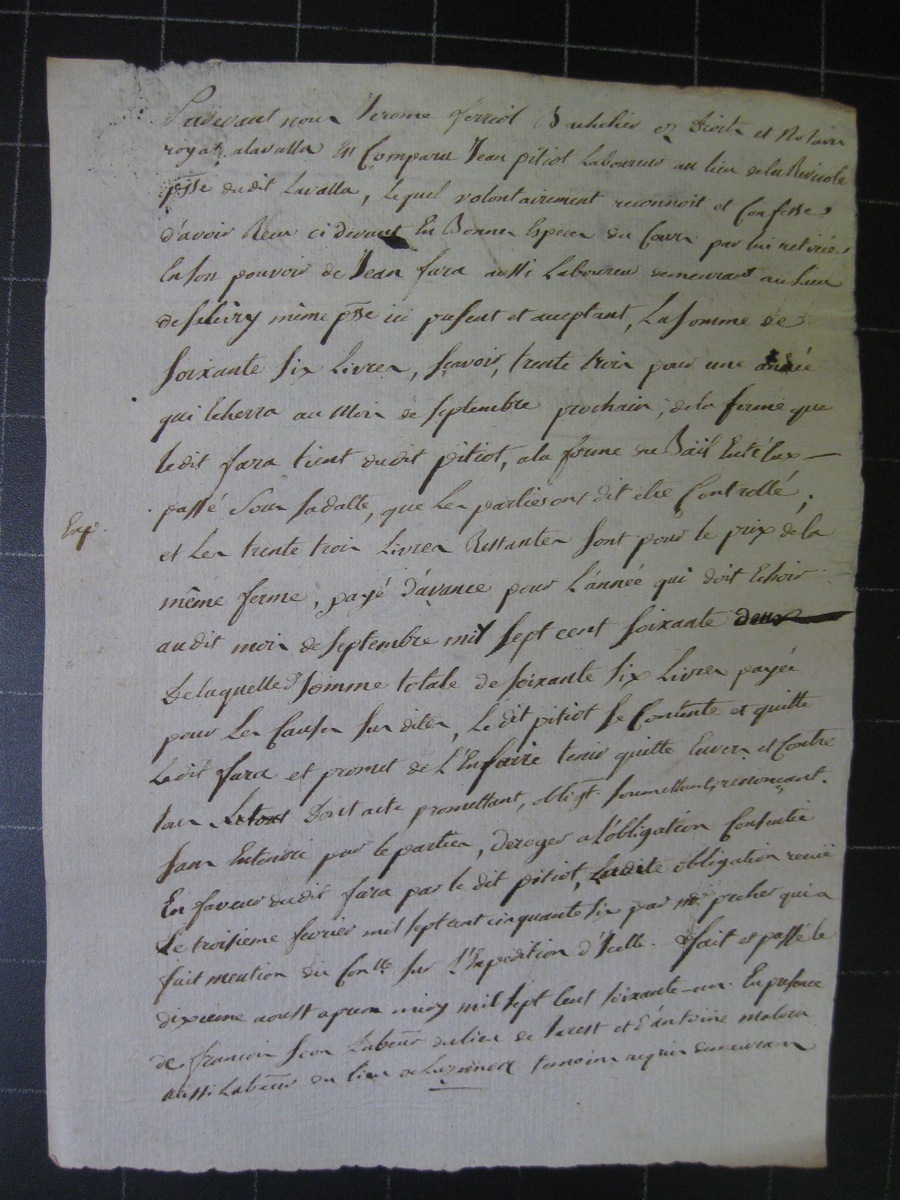 Pardevant nous Jerome ferriol Bachelier en Droit et Notaire
royal alavalla Est Comparu Jean pitiot Laboureur au lieu dela
psse dudit Lavalla, Lequel volontairement reconnoit et Confesse
d'avoir Receu ci devant En Bonnes Especes du Cours par lui retirées
En son pouvoir de Jean fara aussi Laboureur demeurant au Lieu
de même psse ici present et acceptant, La somme de
soixante six Livres, sçavoir, trente trois pour une année
qui Echerra au Mois de septembre prochain, dela ferme que
ledit fara tient dudit pitiot, ala forme du Bail Entr'Eux
passé sous sadatte, que les parties ont dit etre Controllé,
Exp.
et Les trente trois Livres Restantes sont pour le prix dela
même ferme, payé d'avance pour L'année qui doit Echoir
audit mois de septembre mil sept cent soixante deux
De laquelle somme totale de soixante six Livres payée
pour Les Causes sus dites, Le dit pitiot se Contente et quitte
Ledit fara et promet de L'En faire tenir quitte Envers et Contre
tous Dont acte promettant, obligt. soumettant, renonçant.
sans Entendre par les parties, Deroger a L'obligation Consentie
En faveur dudit fara par le dit pitiot, Ladite obligation receüe
Le troisieme fevrier mil sept cent cinquante six par me qui a
fait mention du Conlle sur L'Expedition d'Icelle. fait et passé le
dixieme aoust apres midy mil sept Cent soixante un. En presence
de françois Labeur du lieu de et d'antoine
aussi Labeur du lieu de temoins requis demeurans